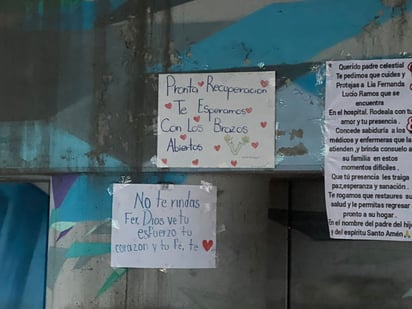 Pronta Recuperacion
Te Esperamos
Con Los Brazos
Abiertos
No te rindas
Fer, Dios ve tu
esfuerzo tu
corazon y tu Fe, te
Querido padre celestial
Te pedimos que cuides y
Protejas a Lia Fernanda
Lucio Ramos que se
encuentra
En el hospital. Rodeala con tu
amor y tu presencia.
Concede sabiduría a los
médicos y enfermeras que la
atienden, y brinda consuelo a
su familia en estos
momentos difíciles.
Que tú presencia les traiga
paz, esperanza y sanación.
Te rogamos que restaures su
salud y le permitas regresar
pronto a su hogar.
En el nombre del padre del hijo
y del espíritu Santo Amén